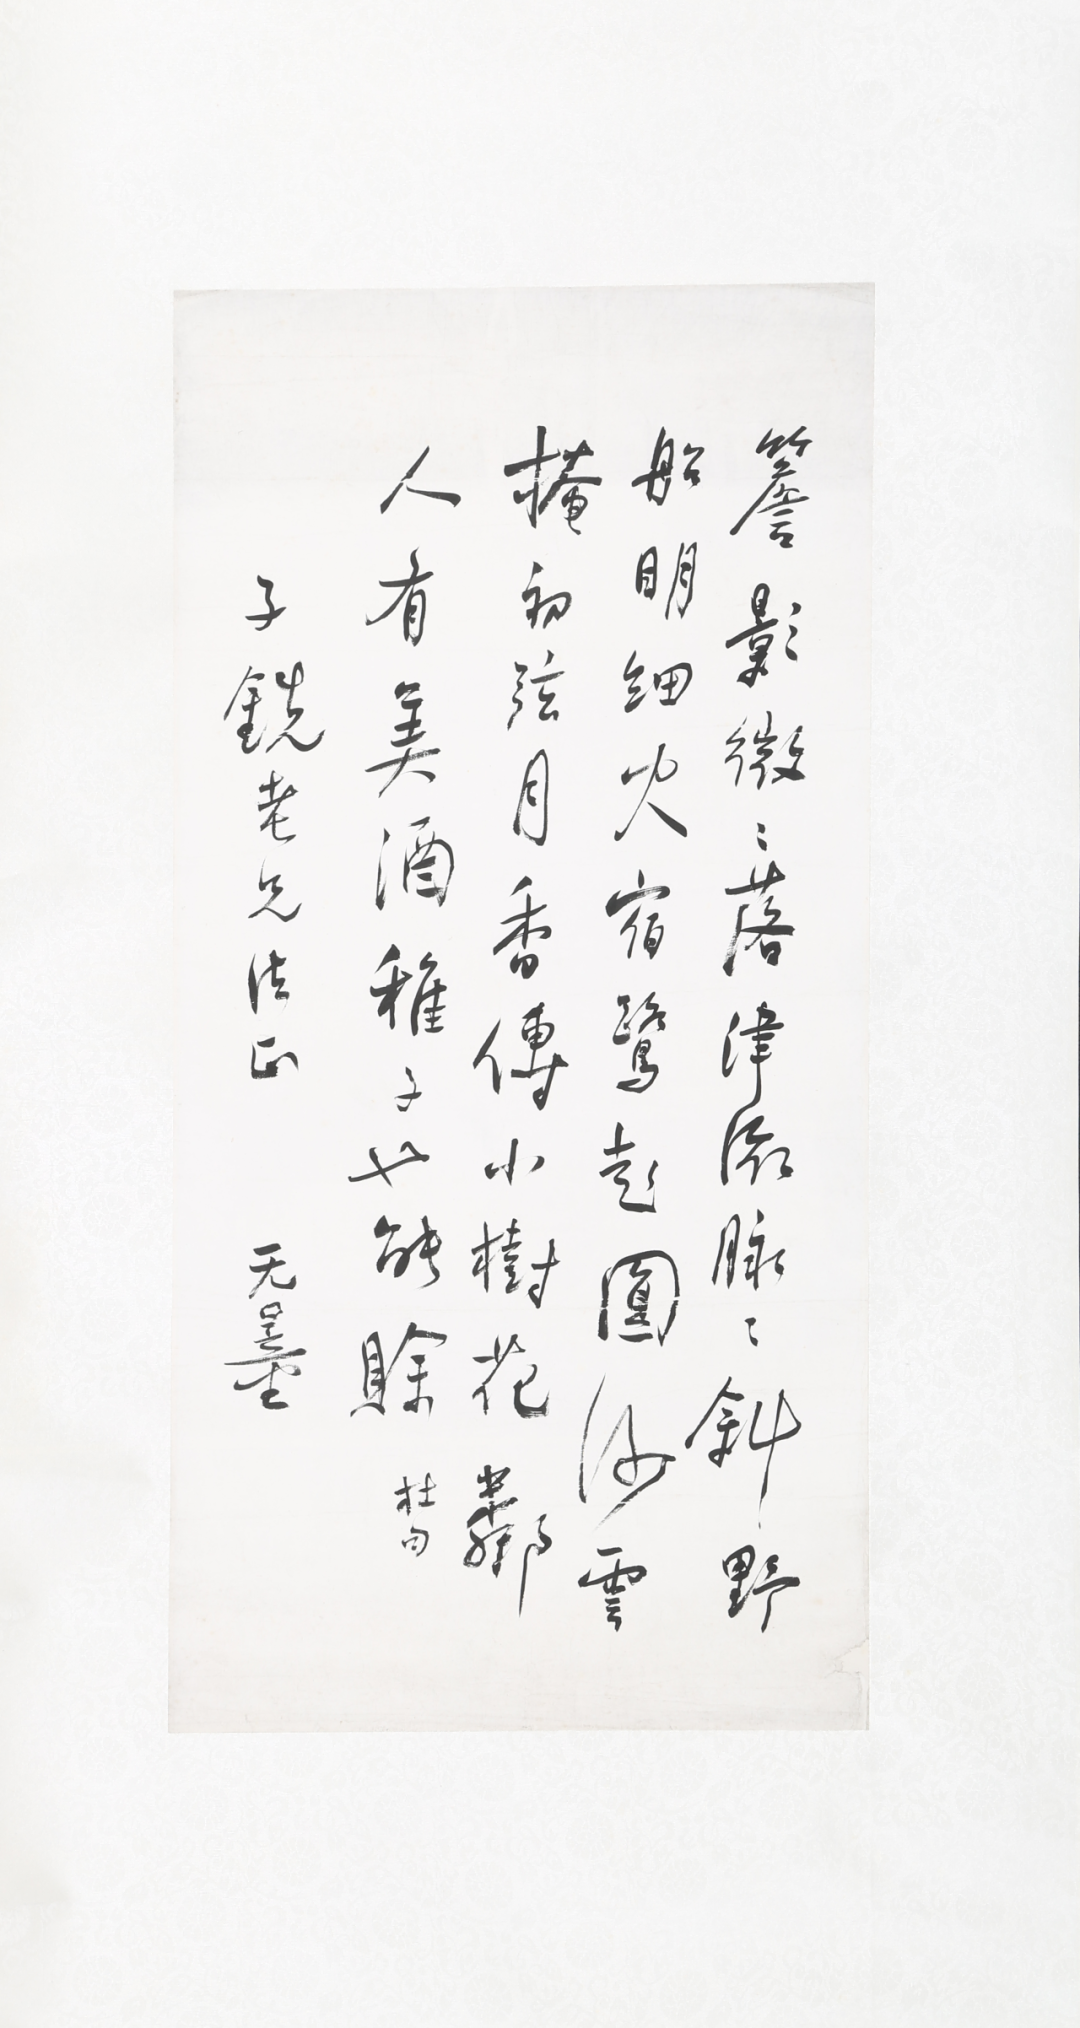 簷影微〻落津流脉〻斜野
船明細火宿鷺起圓沙雲
掩初弦月香傳小樹花鄰
人有美酒稚子也能賒
杜句
子銑老兄法正
无量